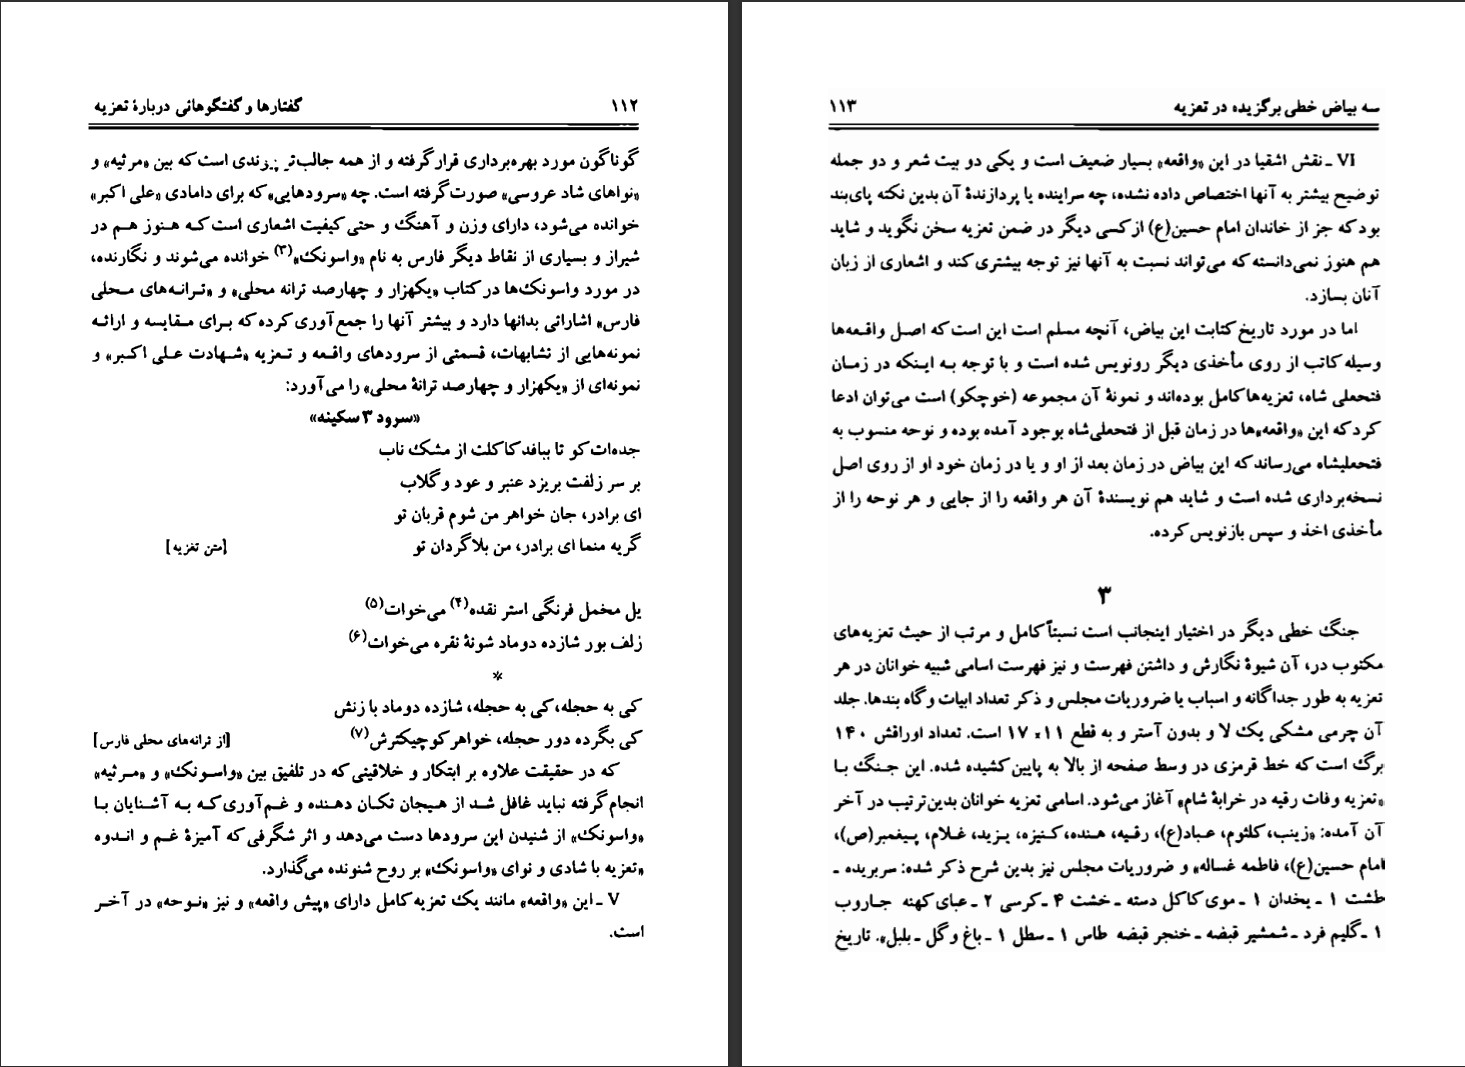 ۱۱۲ گفتارها و گفتگوهائی دربارهٔ تعزیه
گوناگون مورد بهره‌برداری قرار گرفته و از همه جالب‌تر پیوندی است که بین «مرثیه» و
«نواهای شاد عروسی» صورت گرفته است. چه «سرودهایی» که برای دامادی «علی اکبر»
خوانده می‌شود، دارای وزن و آهنگ و حتی کیفیت اشعاری است که هنوز هم در
شیراز و بسیاری از نقاط دیگر فارس به نام «واسونک»(۳) خوانده می‌شوند و نگارنده،
در مورد واسونک‌ها در کتاب «یکهزار و چهارصد ترانه محلی» و «ترانه‌های محلی
فارس» اشاراتی بدانها دارد و بیشتر آنها را جمع‌آوری کرده که برای مقایسه و ارائه
نمونه‌هایی از تشابهات، قسمتی از سرودهای واقعه و تعزیه «شهادت علی اکبر» و
نمونه‌ای از «یکهزار و چهارصد ترانهٔ محلی» را می‌آورد:
«سرود ۳ سکینه»
جده‌ات کو تا ببافد کاکلت از مشک ناب
بر سر زلفت بریزد عنبر و عود و گلاب
ای برادر، جان خواهر من شوم قربان تو
گریه منما ای برادر، من بلاگردان تو [متن تغزیه]
یل مخمل فرنگی استر نقده(۴) می‌خوات(۵)
زلف بور شازده دوماد شونهٔ نقره می‌خوات(۶)
*
کی به حجله، کی به حجله، شازده دوماد با زنش
کی بگرده دور حجله، خواهر کوچیکترش(۷) [از ترانه‌های محلی فارس]
که در حقیقت علاوه بر ابتکار و خلاقیتی که در تلفیق بین «واسونک» و «مرثیه»
انجام گرفته نباید غافل شد از هیجان تکان دهنده و غم‌آوری که به آشنایان با
«واسونک» از شنیدن این سرودها دست می‌دهد و اثر شگرفی که آمیزهٔ غم و اندوه
«تعزیه با شادی و نوای «واسونک» بر روح شنونده می‌گذارد.
V ـ این «واقعه» مانند یک تعزیه کامل دارای «پیش واقعه» و نیز «نوحه» در آخر
است.
سه بیاض خطی برگزیده در تعزیه ۱۱۳
VI ـ نقش اشقیا در این «واقعه» بسیار ضعیف است و یکی دو بیت شعر و دو جمله
توضیح بیشتر به آنها اختصاص داده نشده، چه سراینده یا پردازندهٔ آن بدین نکته پای‌بند
بود که جز از خاندان امام حسین(ع) از کسی دیگر در ضمن تعزیه سخن نگوید و شاید
هم هنوز نمی‌دانسته که می‌تواند نسبت به آنها نیز توجه بیشتری کند و اشعاری از زبان
آنان بسازد.
اما در مورد تاریخ کتابت این بیاض، آنچه مسلم است این است که اصل واقعه‌ها
وسیله کاتب از روی مأخذی دیگر رونویس شده است و با توجه به اینکه در زمان
فتحعلی شاه، تعزیه‌ها کامل بوده‌اند و نمونهٔ آن مجموعه (خوچکو) است می‌توان ادعا
کرد که این «واقعه»ها در زمان قبل از فتحعلی‌شاه بوجود آمده بوده و نوحه منسوب به
فتحعلیشاه می‌رساند که این بیاض در زمان بعد از او و یا در زمان خود او از روی اصل
نسخه‌برداری شده است و شاید هم نویسندهٔ آن هر واقعه را از جایی و هر نوحه را از
مأخذی اخذ و سپس بازنویس کرده.
۳
جنگ خطی دیگر در اختیار اینجانب است نسبتاً کامل و مرتب از حیث تعزیه‌های
مکتوب در، آن شیوهٔ نگارش و داشتن فهرست و نیز فهرست اسامی شبیه خوانان در هر
تعزیه به طور جداگانه و اسباب یا ضروریات مجلس و ذکر تعداد ابیات و گاه بندها. جلد
آن چرمی مشکی یک لا و بدون آستر و به قطع ۱۱×۱۷ است. تعداد اوراقش ۱۴۰
برگ است که خط قرمزی در وسط صفحه از بالا به پایین کشیده شده. این جنگ با
«تعزیه وفات رقیه در خرابهٔ شام» آغاز می‌شود. اسامی تعزیه خوانان بدین‌ترتیب در آخر
آن آمده: «زینب، کلثوم، عباد(ع)، رقیه، هنده، کنیزه، یزید، غلام، پیغمبر(ص)،
امام حسین(ع)، فاطمه غساله» و ضروریات مجلس نیز بدین شرح ذکر شده: سربریده ـ
طشت ۱ ـ یخدان ۱ ـ موی کاکل دسته ـ خشت ۴ ـ کرسی ۲ ـ عبای کهنه جاروب
۱ ـ گلیم فرد ـ شمشیر قبضه ـ خنجر قبضه طاس ۱ ـ سطل ۱ ـ باغ و گل ـ بلبل». تاریخ